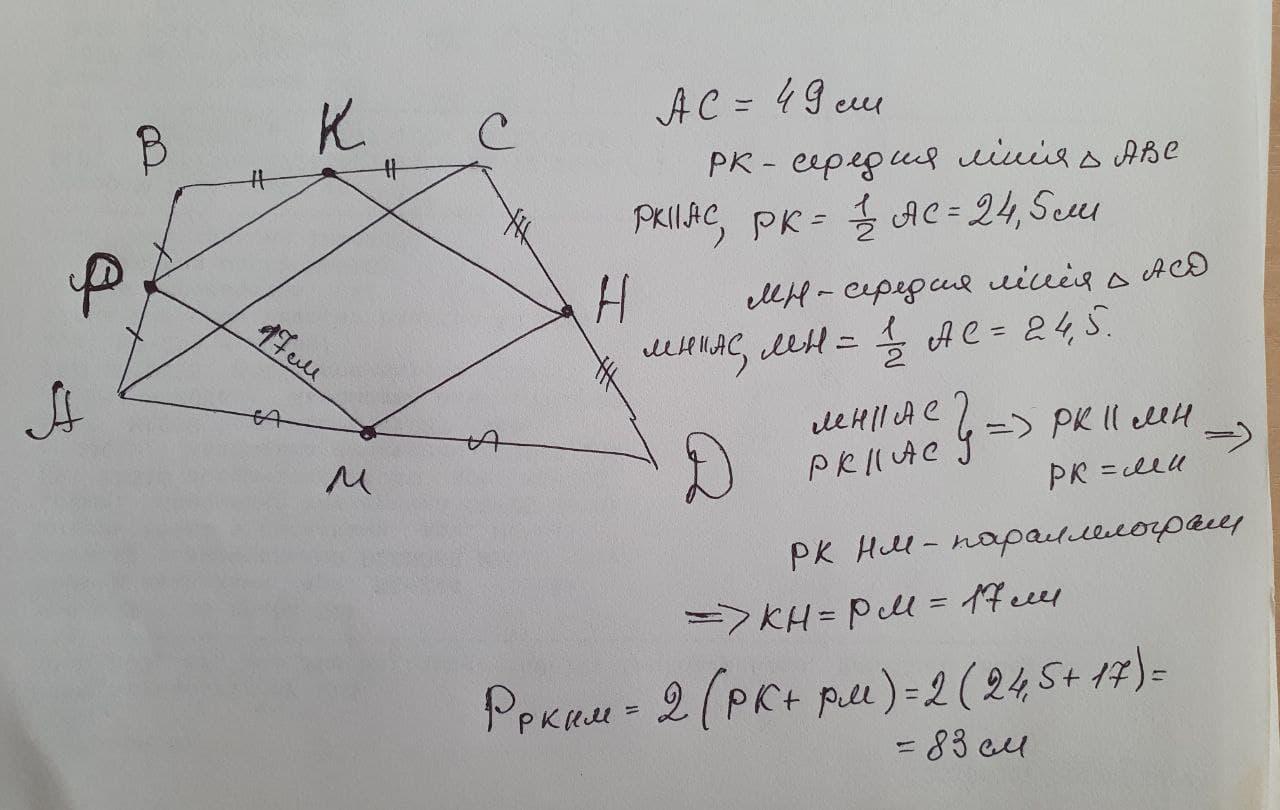 B
K
C
P
17см
H
A
M
D
AC = 49 см
PK - середня лінія △ ABC
PK||AC, PK = 1/2 AC = 24,5 см
MH - середня лінія △ ACD
MH||AC, MH = 1/2 AC = 24,5.
MH||AC
PK||AC } => PK || MH =>
PK = MH
PK HM - параллелограм
=> KH = PM = 17 см
P PKHM = 2 (PK + PM) = 2 (24,5 + 17) =
= 83 см